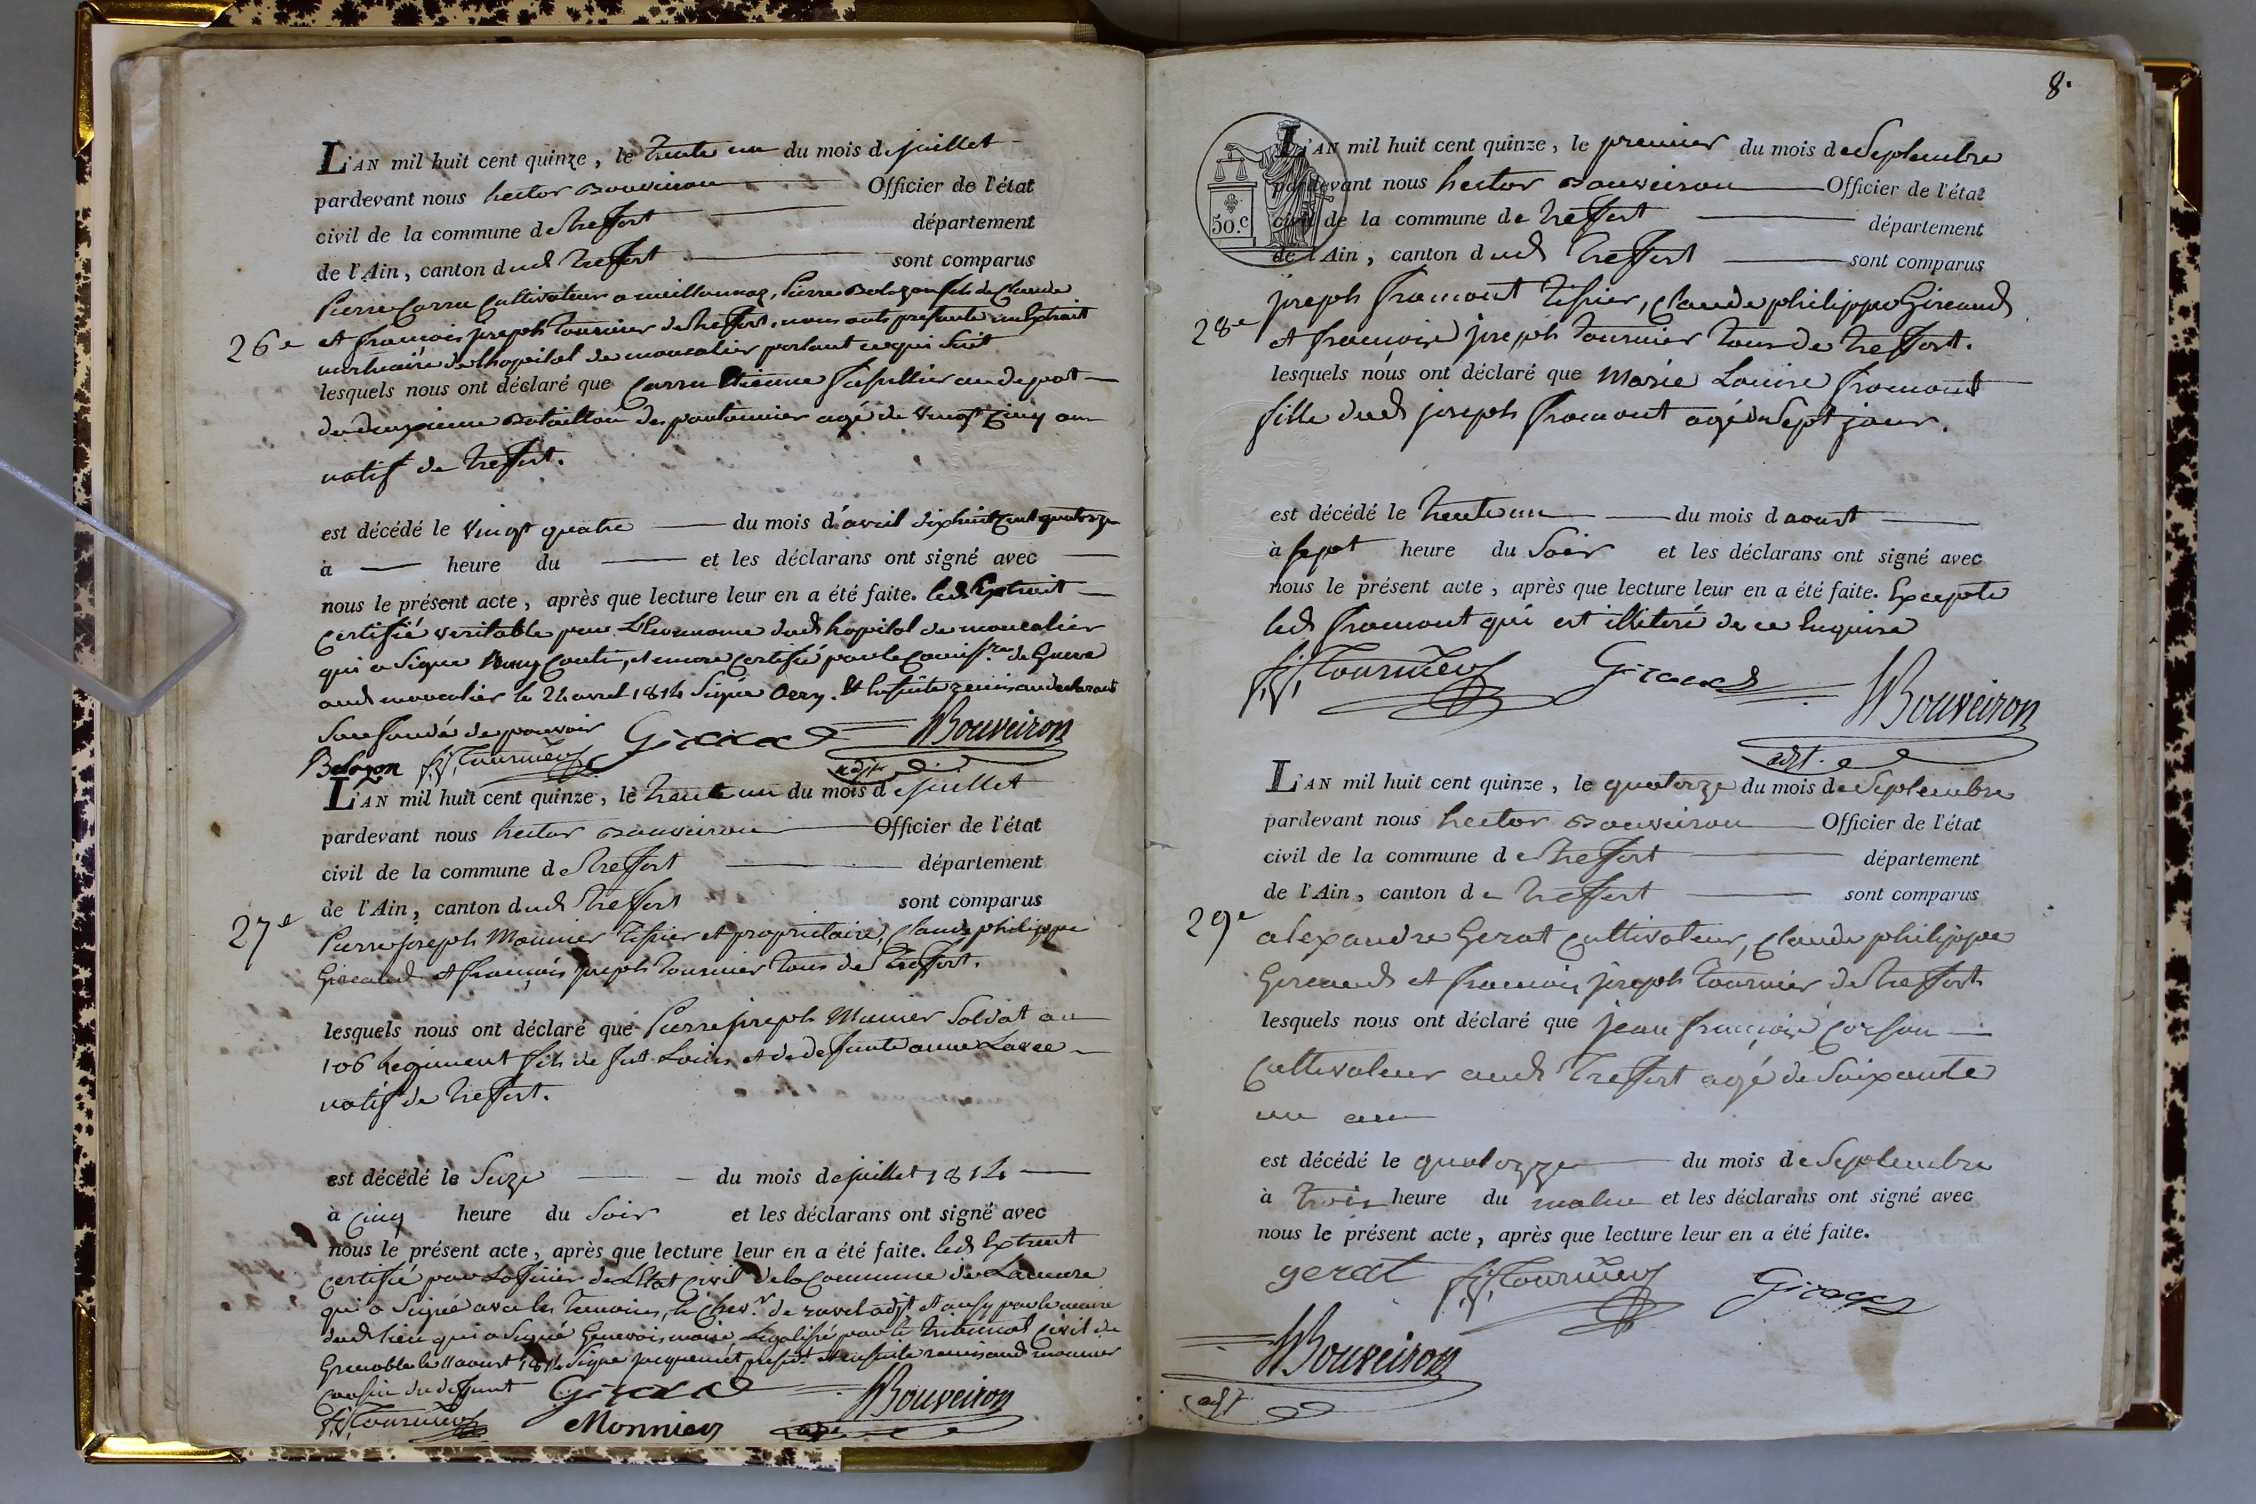 L'AN mil huit cent quinze, le trente un du mois de juillet
pardevant nous hector Bouveiron Officier de l'état
civil de la commune de treffort département
de l'Ain, canton dud treffort sont comparus
Pierre Carru Cultivateur a meillonnaz, Pierre Bologon fils de Claude
26e
et françois joseph tournier de treffort. nous onts presenté un Extrait
mortuaire de lhopital de moncalier portant ce qui suit
lesquels nous ont déclaré que Carru Etienne fusillier au depot
du deuxieme Bataillon des pontonnier agé de vingt cinq an
natif de treffort.
est décédé le vingt quatre du mois d'avril dixhuit cent quatorze
à heure du et les déclarans ont signé avec
nous le présent acte, après que lecture leur en a été faite. led Extrait
certifié veritable par L'Econome dud hopital de moncalier
qui a signé Conti, et encore certifié par le de Guerre
aud moncalier le 24 avril 1814 signé. Et Ensuite remis au declarant
Son fondé de pouvoir
Bologon f. j. Tournier Giraud Bouveiron
adjt
L'AN mil huit cent quinze, le trente un du mois de juillet
pardevant nous hector Bouveiron Officier de l'état
civil de la commune de treffort département
de l'Ain, canton dud treffort sont comparus
27e
Pierre joseph Monnier tissier et propriétaire, Claude philippe
Gireaud et françois joseph tournier tous de treffort.
lesquels nous ont déclaré que Pierre joseph Munier Soldat au
106 Regiment fils de fut Louis et de deffunte anne
natif de treffort.
est décédé le Seize du mois de juillet 1814
à Cinq heure du Soir et les déclarans ont signé avec
nous le présent acte, après que lecture leur en a été faite. led Extrait
certifié par Lofficier de L'Etat Civil de la Commune de Lamure
qui a Signé avec les temoins, le Chevr de ravel adjt et ausy par le maire
dud lieu qui a Signé Genevois maire Legalisé par le tribunal Civil de
Grenoble le 11 aoust 1814 Signé jacquemet presidt et ensuite remis aud monnier
Cousin du deffunt
f. j. Tournier Giraud Monnier Bouveiron
adjt
8.
50.c
L'AN mil huit cent quinze, le premier du mois de Septembre
pardevant nous hector Bouveiron Officier de l'état
civil de la commune de treffort département
de l'Ain, canton dud treffort sont comparus
joseph fromont tissier, Claude philippe Gireaud
28e
et françois joseph tournier tous de treffort.
lesquels nous ont déclaré que Marie Louise fromont
fille dud joseph fromont agé de Sept jour.
est décédé le trente un du mois d aoust
à sept heure du Soir et les déclarans ont signé avec
nous le présent acte, après que lecture leur en a été faite. Excepté
led fromont qui est illiteré de ce Enquise
f. j. Tournier Giraud Bouveiron
adjt.
L'AN mil huit cent quinze, le quatorze du mois de Septembre
pardevant nous hector Bouveiron Officier de l'état
civil de la commune de treffort département
de l'Ain, canton de treffort sont comparus
29e
alexandre Gerat Cultivateur, Claude philippe
Gireaud et francois joseph tournier de treffort
lesquels nous ont déclaré que jean françois Corsan
Cultivateur aud treffort agé de Soixante
un an
est décédé le quatorze du mois de Septembre
à trois heure du matin et les déclarans ont signé avec
nous le présent acte, après que lecture leur en a été faite.
gerat f. j. Tournier Giraud
Bouveiron
adjt